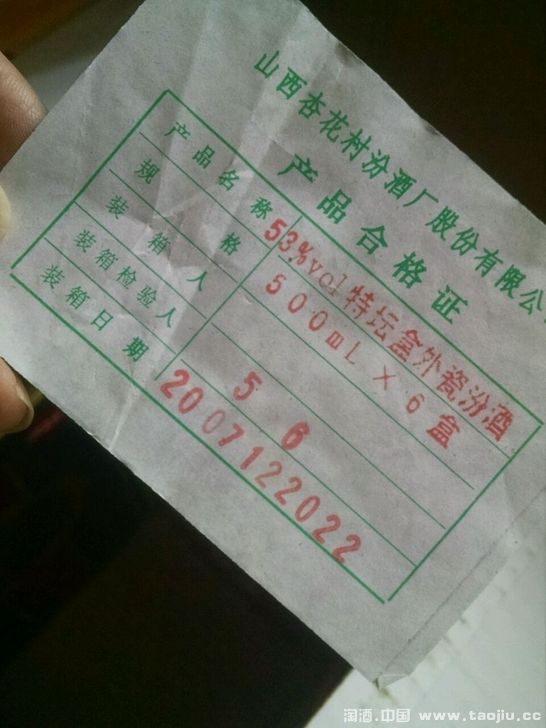 山西杏花村汾酒厂股份有限公
产品合格证
产品名称 53%vol特坛盒外瓷汾酒
规格 500mL×6盒
装箱人
装箱检验人 56
装箱日期 2007122022
淘酒.中国 www.taojiu.cc